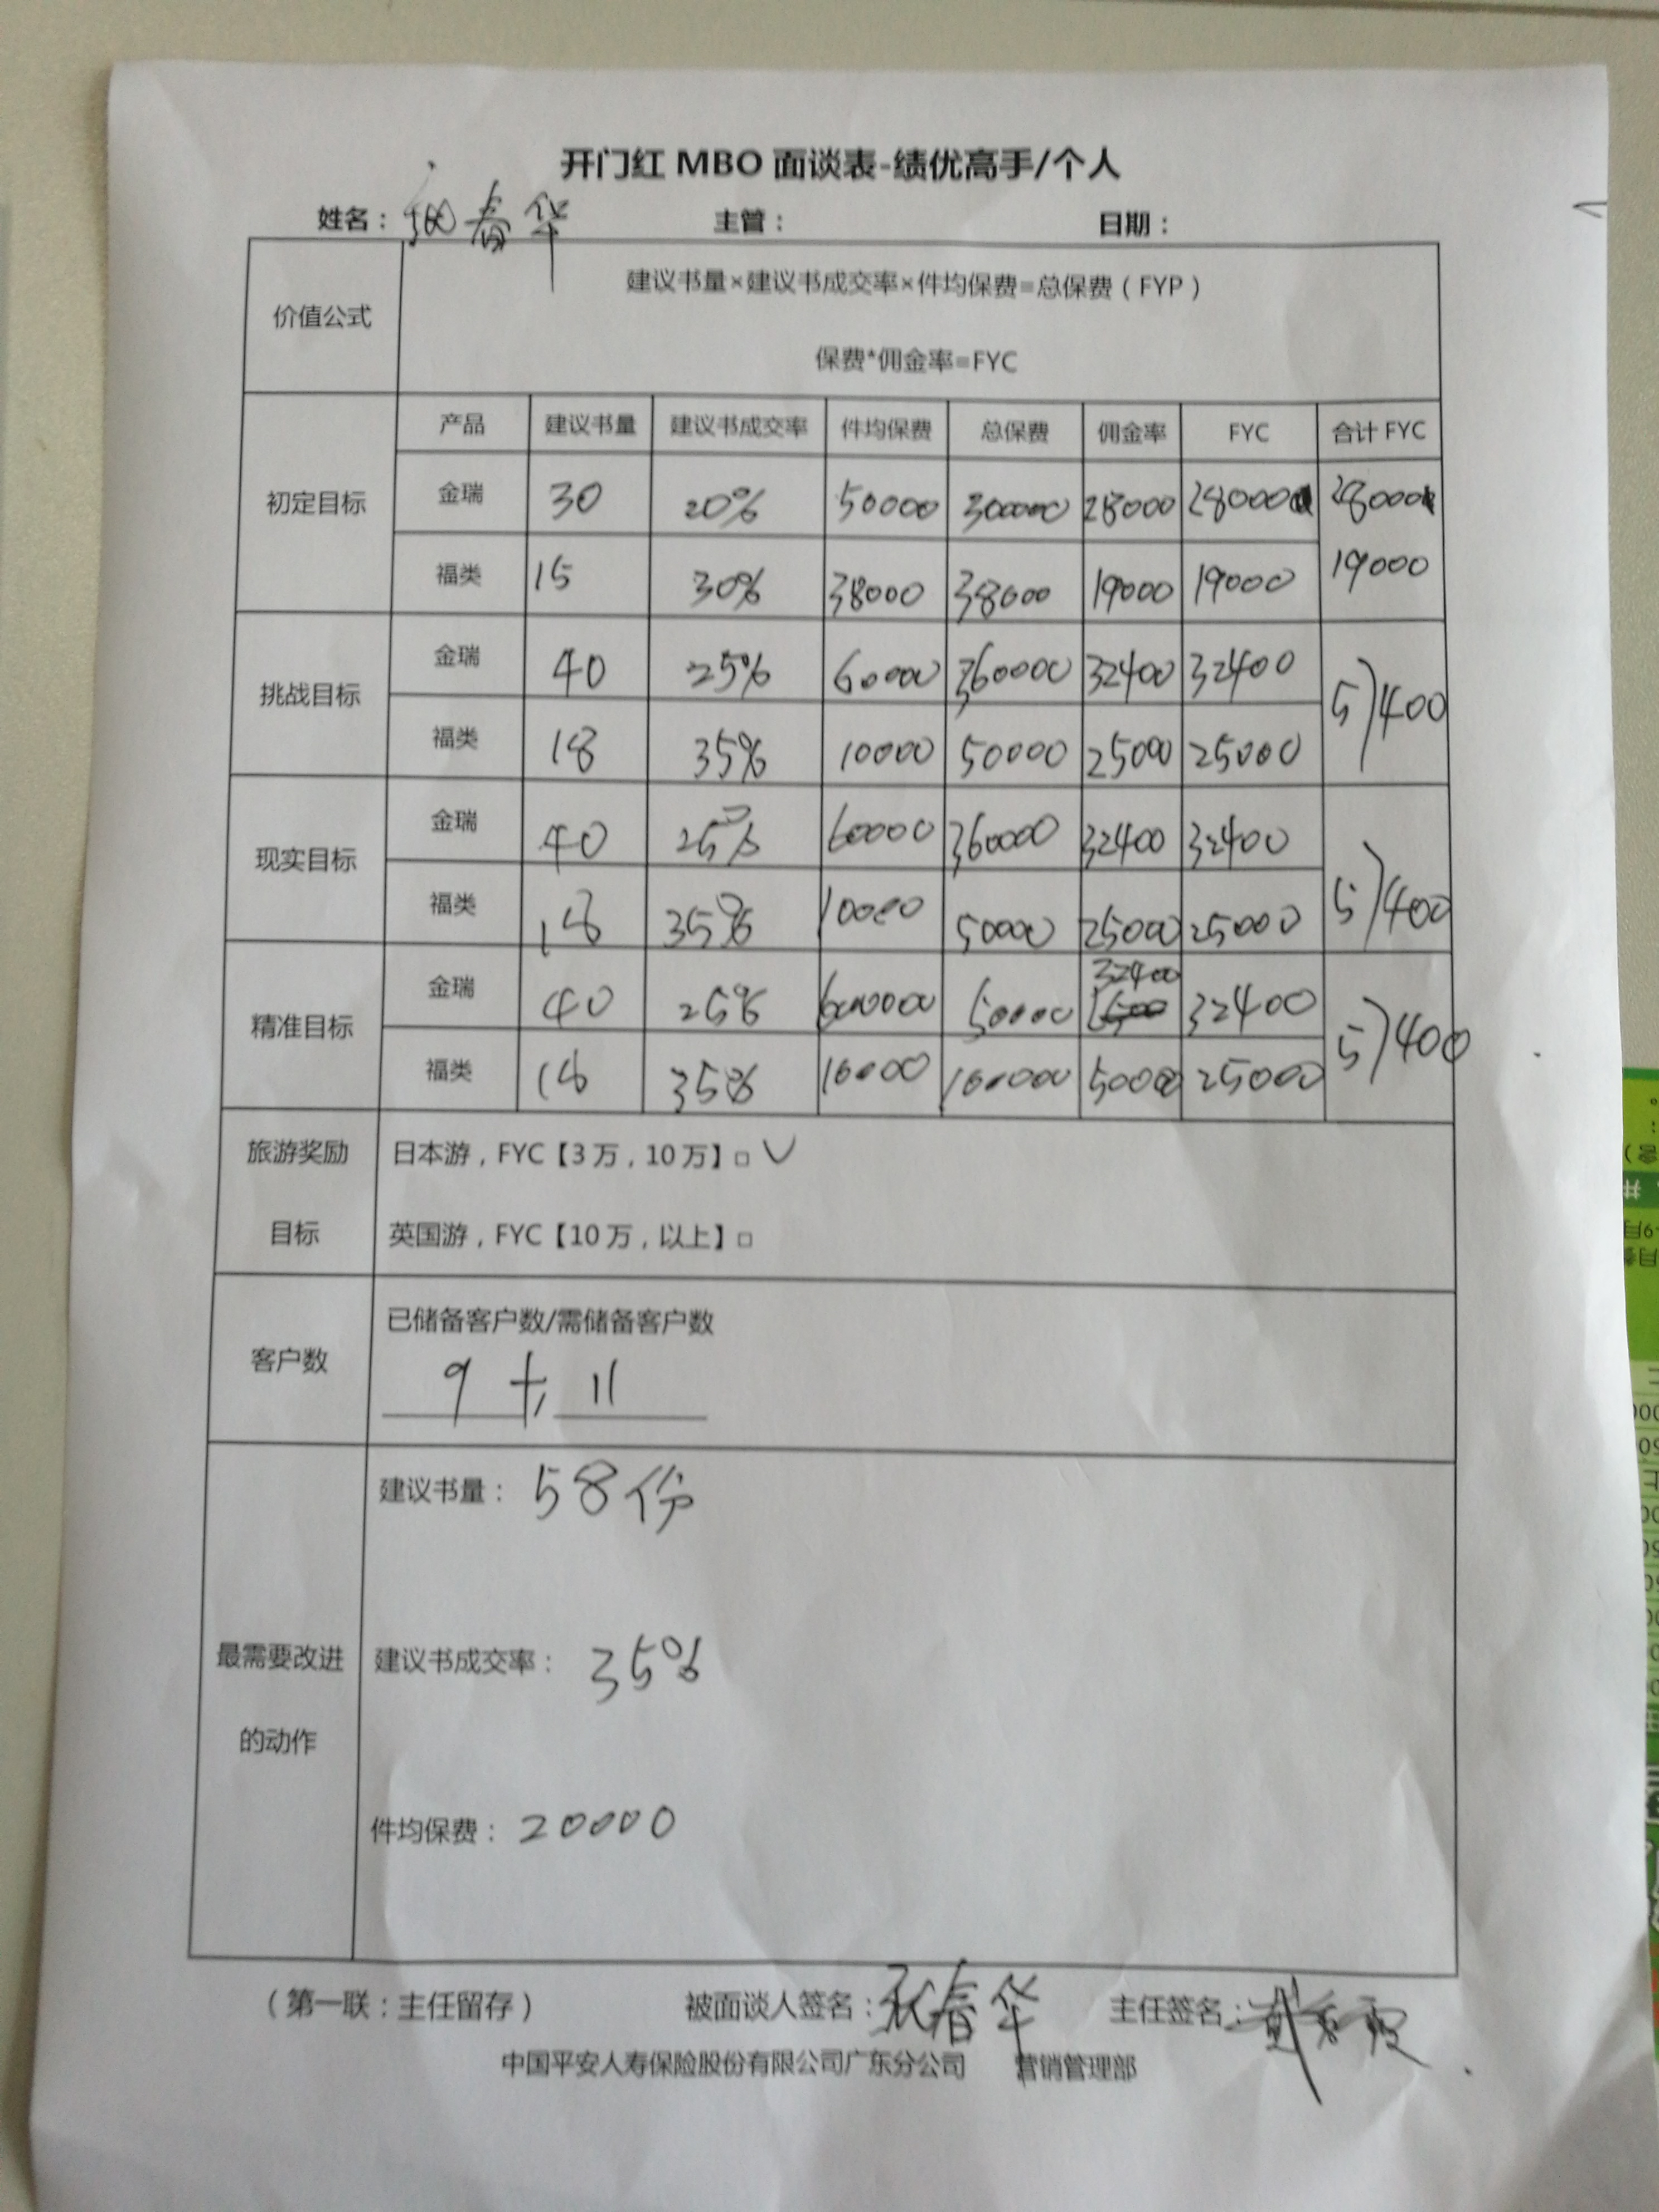 开门红 MBO 面谈表-绩优高手/个人
姓名： 春华 主管： 日期：
价值公式
建议书量×建议书成交率×件均保费=总保费（FYP）
保费*佣金率=FYC
产品 建议书量 建议书成交率 件均保费 总保费 佣金率 FYC 合计 FYC
初定目标
金瑞 30 20% 50000 300000 28000 28000 28000
福类 15 30% 38000 38000 19000 19000 19000
挑战目标
金瑞 40 25% 60000 360000 32400 32400 57400
福类 18 35% 10000 50000 25000 25000
现实目标
金瑞 40 25% 60000 360000 32400 32400 57400
福类 18 35% 10000 50000 25000 25000
精准目标
金瑞 40 25% 600000 50000 32400 32400 57400
福类 18 35% 10000 100000 50000 25000
旅游奖励
目标
日本游，FYC【3万，10万】□ √
英国游，FYC【10万，以上】□
客户数
已储备客户数/需储备客户数
9 / 11
最需要改进
的动作
建议书量： 58份
建议书成交率： 35%
件均保费： 20000
（第一联：主任留存） 被面谈人签名： 春华 主任签名：
中国平安人寿保险股份有限公司广东分公司 营销管理部